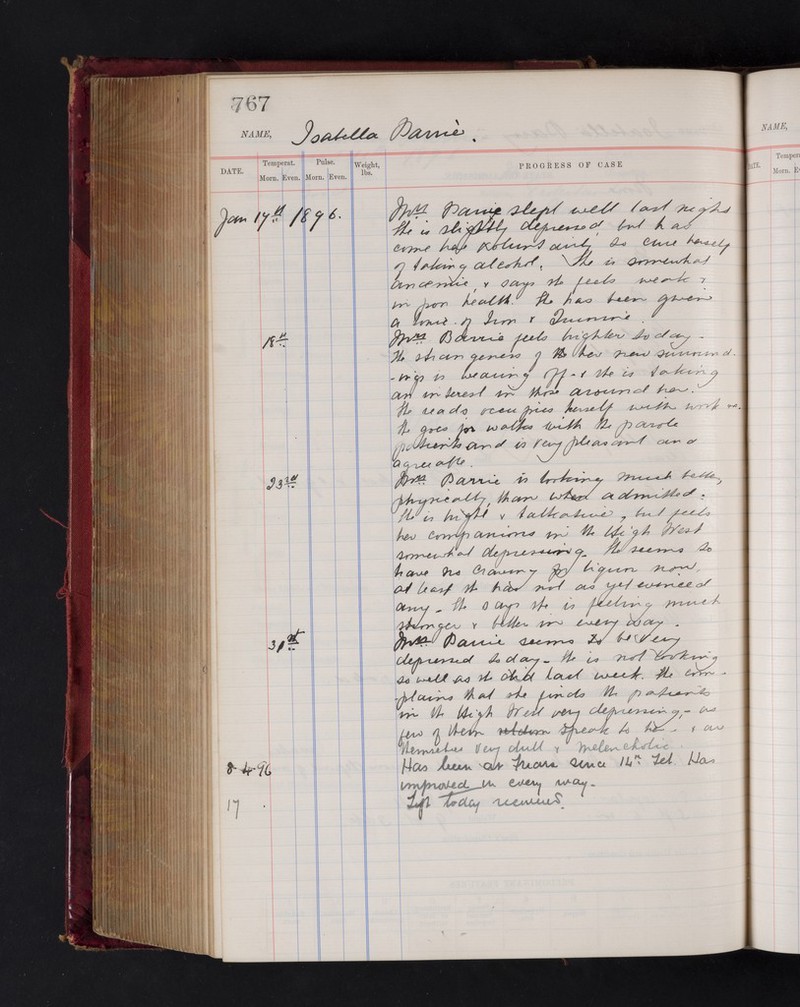 767
NAME, Isabella Barrie.
NAME,
DATE. Temperat. Pulse. Weight, lbs. PROGRESS OF CASE
Morn. Even. Morn. Even.
Temper
Morn. E
Jan 17th 1896. Mrs Barrie slept well last night
She is slightly depressed, but has
come here voluntarily to cure herself
of taking alcohol. She is somewhat
anaemic, & says she feels weak &
in poor health. She has been given
a tonic of Iron & Quinine.
18th Mrs Barrie feels brighter today -
The strangeness of her new surround-
-ings is wearing off - & she is taking
an interest in those around her.
She reads, occupies herself with work
She goes for walks with the parole
patients and is very pleasant and
agreeable.
23rd Mrs Barrie is looking much better,
physically, than when admitted.
She is bright & talkative, but feels
her companions in the High West
somewhat depressing. She seems to
have no craving for liquor now,
at least she has not as yet evinced
any - She says she is feeling much
stronger & better in every way.
31st Mrs Barrie seems to be very
depressed today - She is not looking
so well as she did last week. She com-
-plains that she finds the patients
in the High West very depressing, - as
few of them seldom speak to her - & are
themselves very dull & melancholic.
8-4-96 Has been at since 14th Feb. Has
improved in every way.
17 Left today recovered.